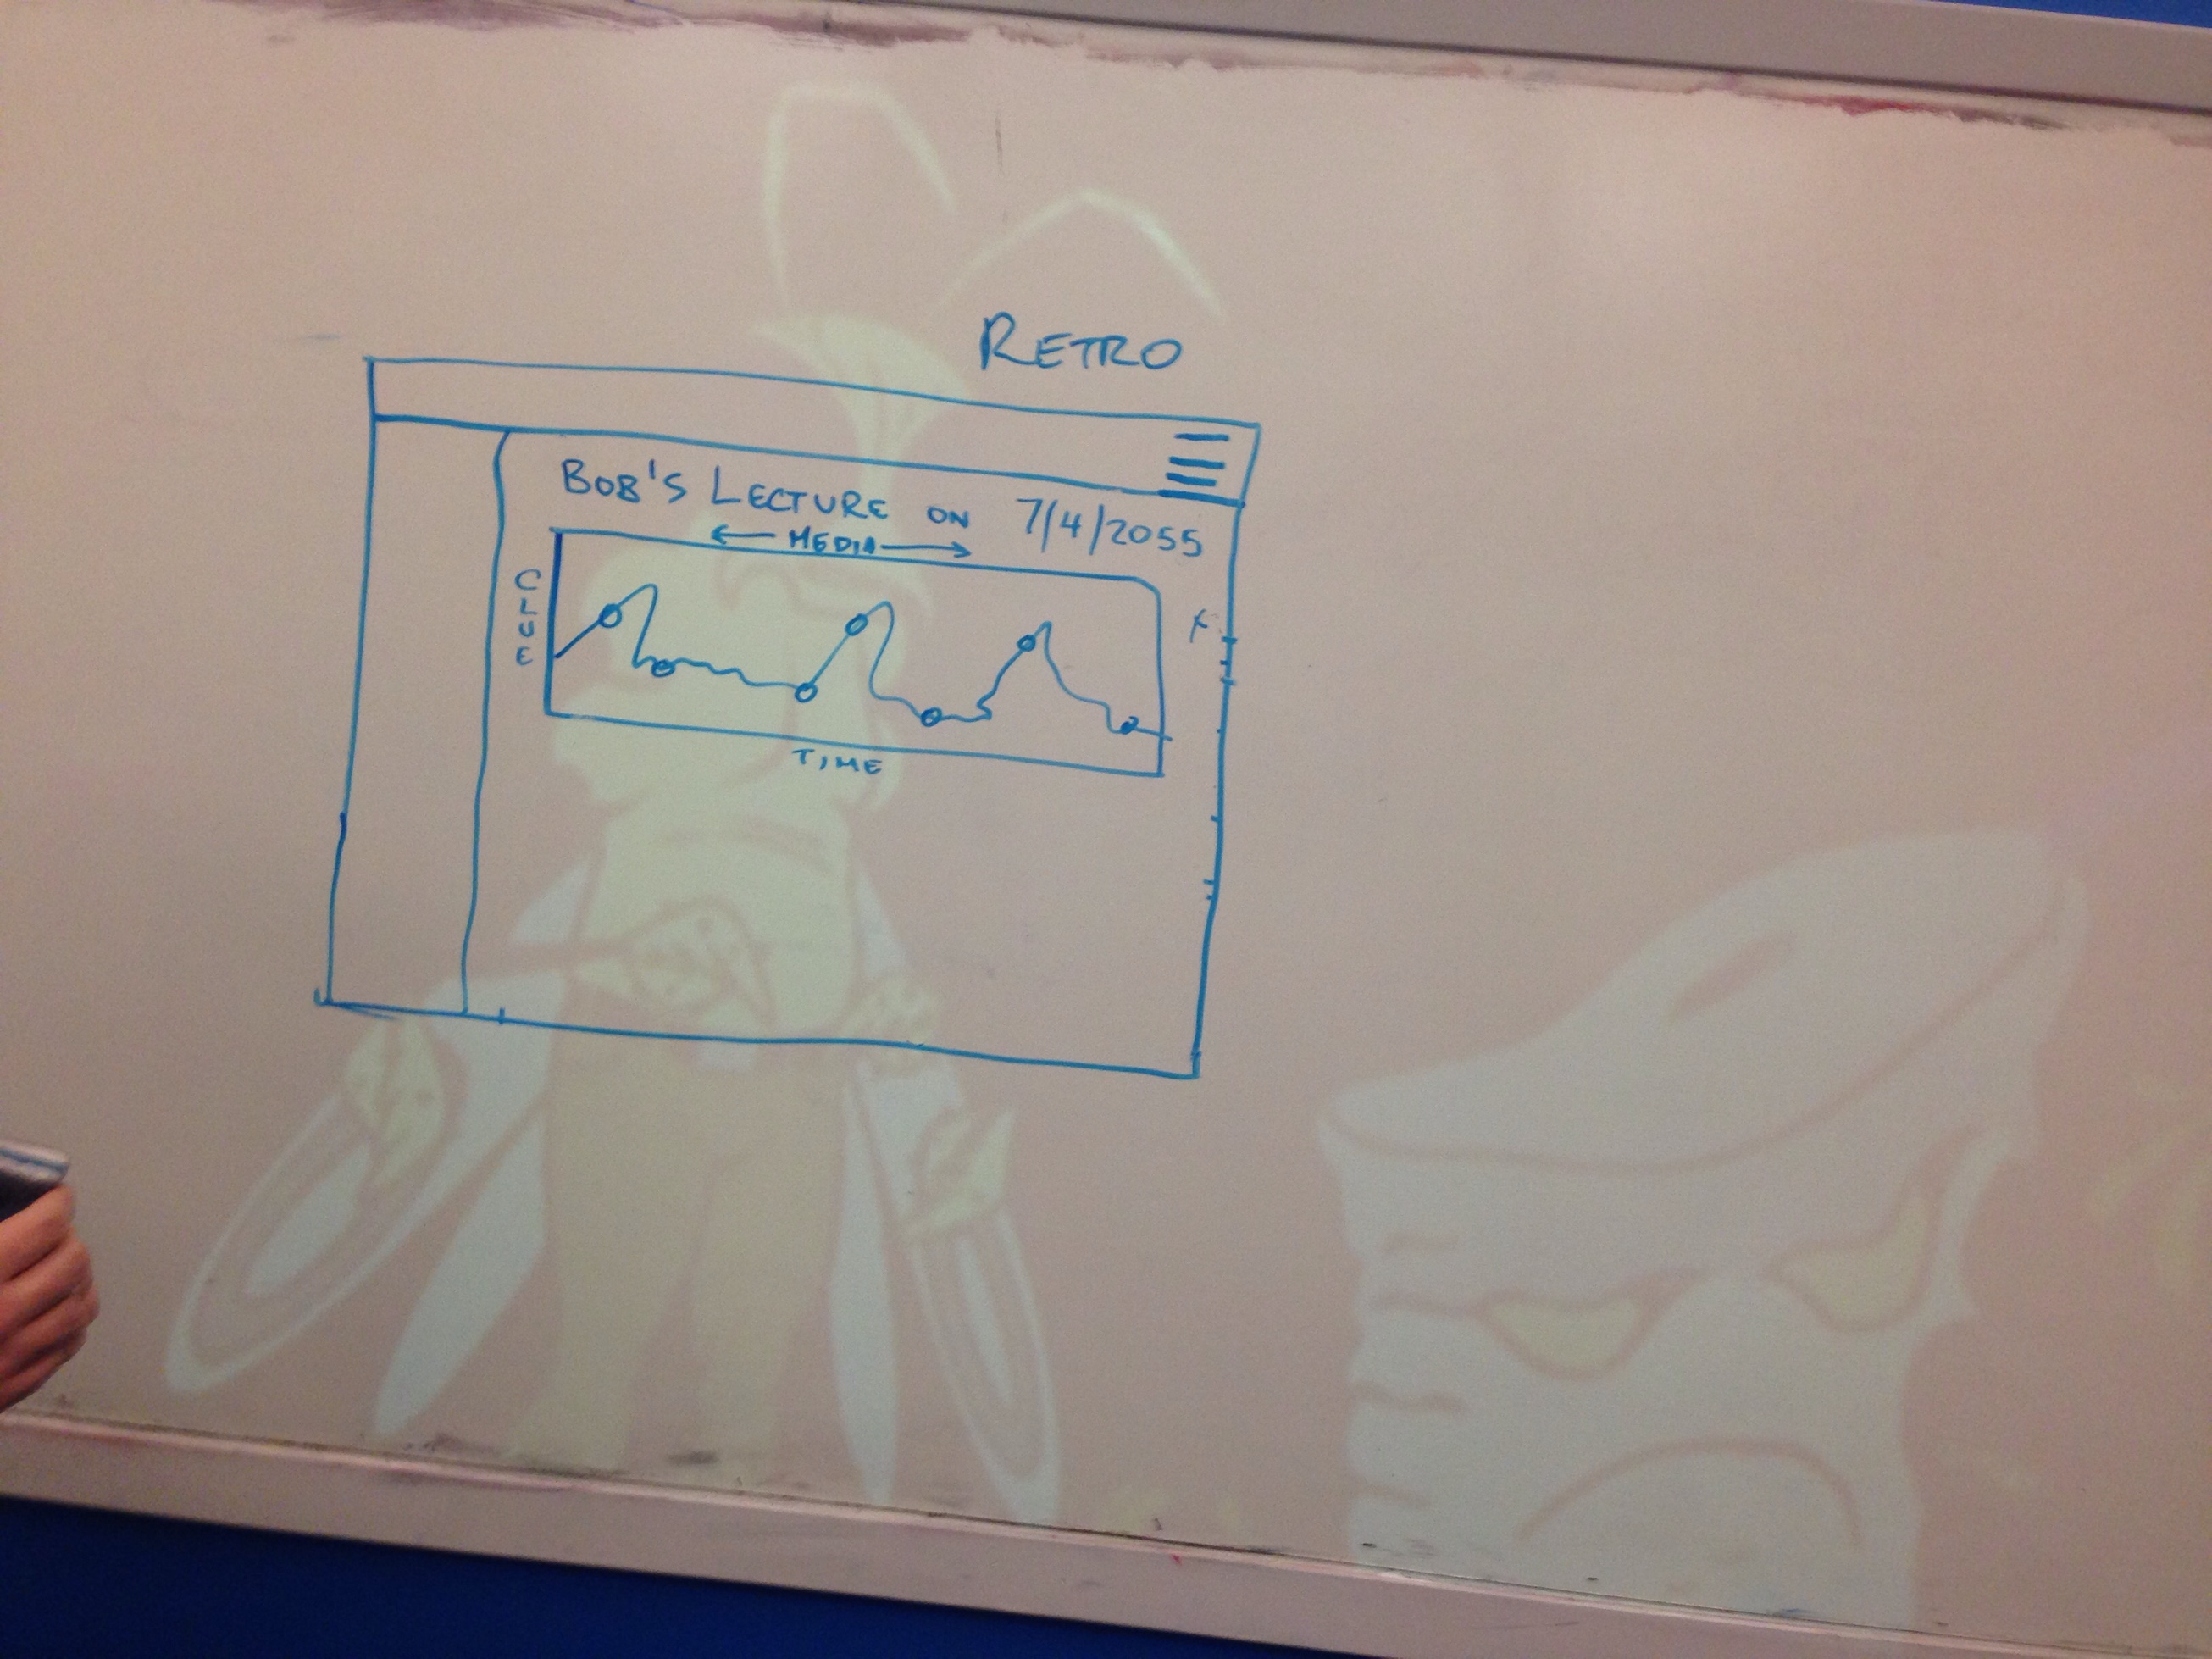 RETRO
BOB'S LECTURE ON 7/4/2055
← MEDIA →
CLUE
TIME